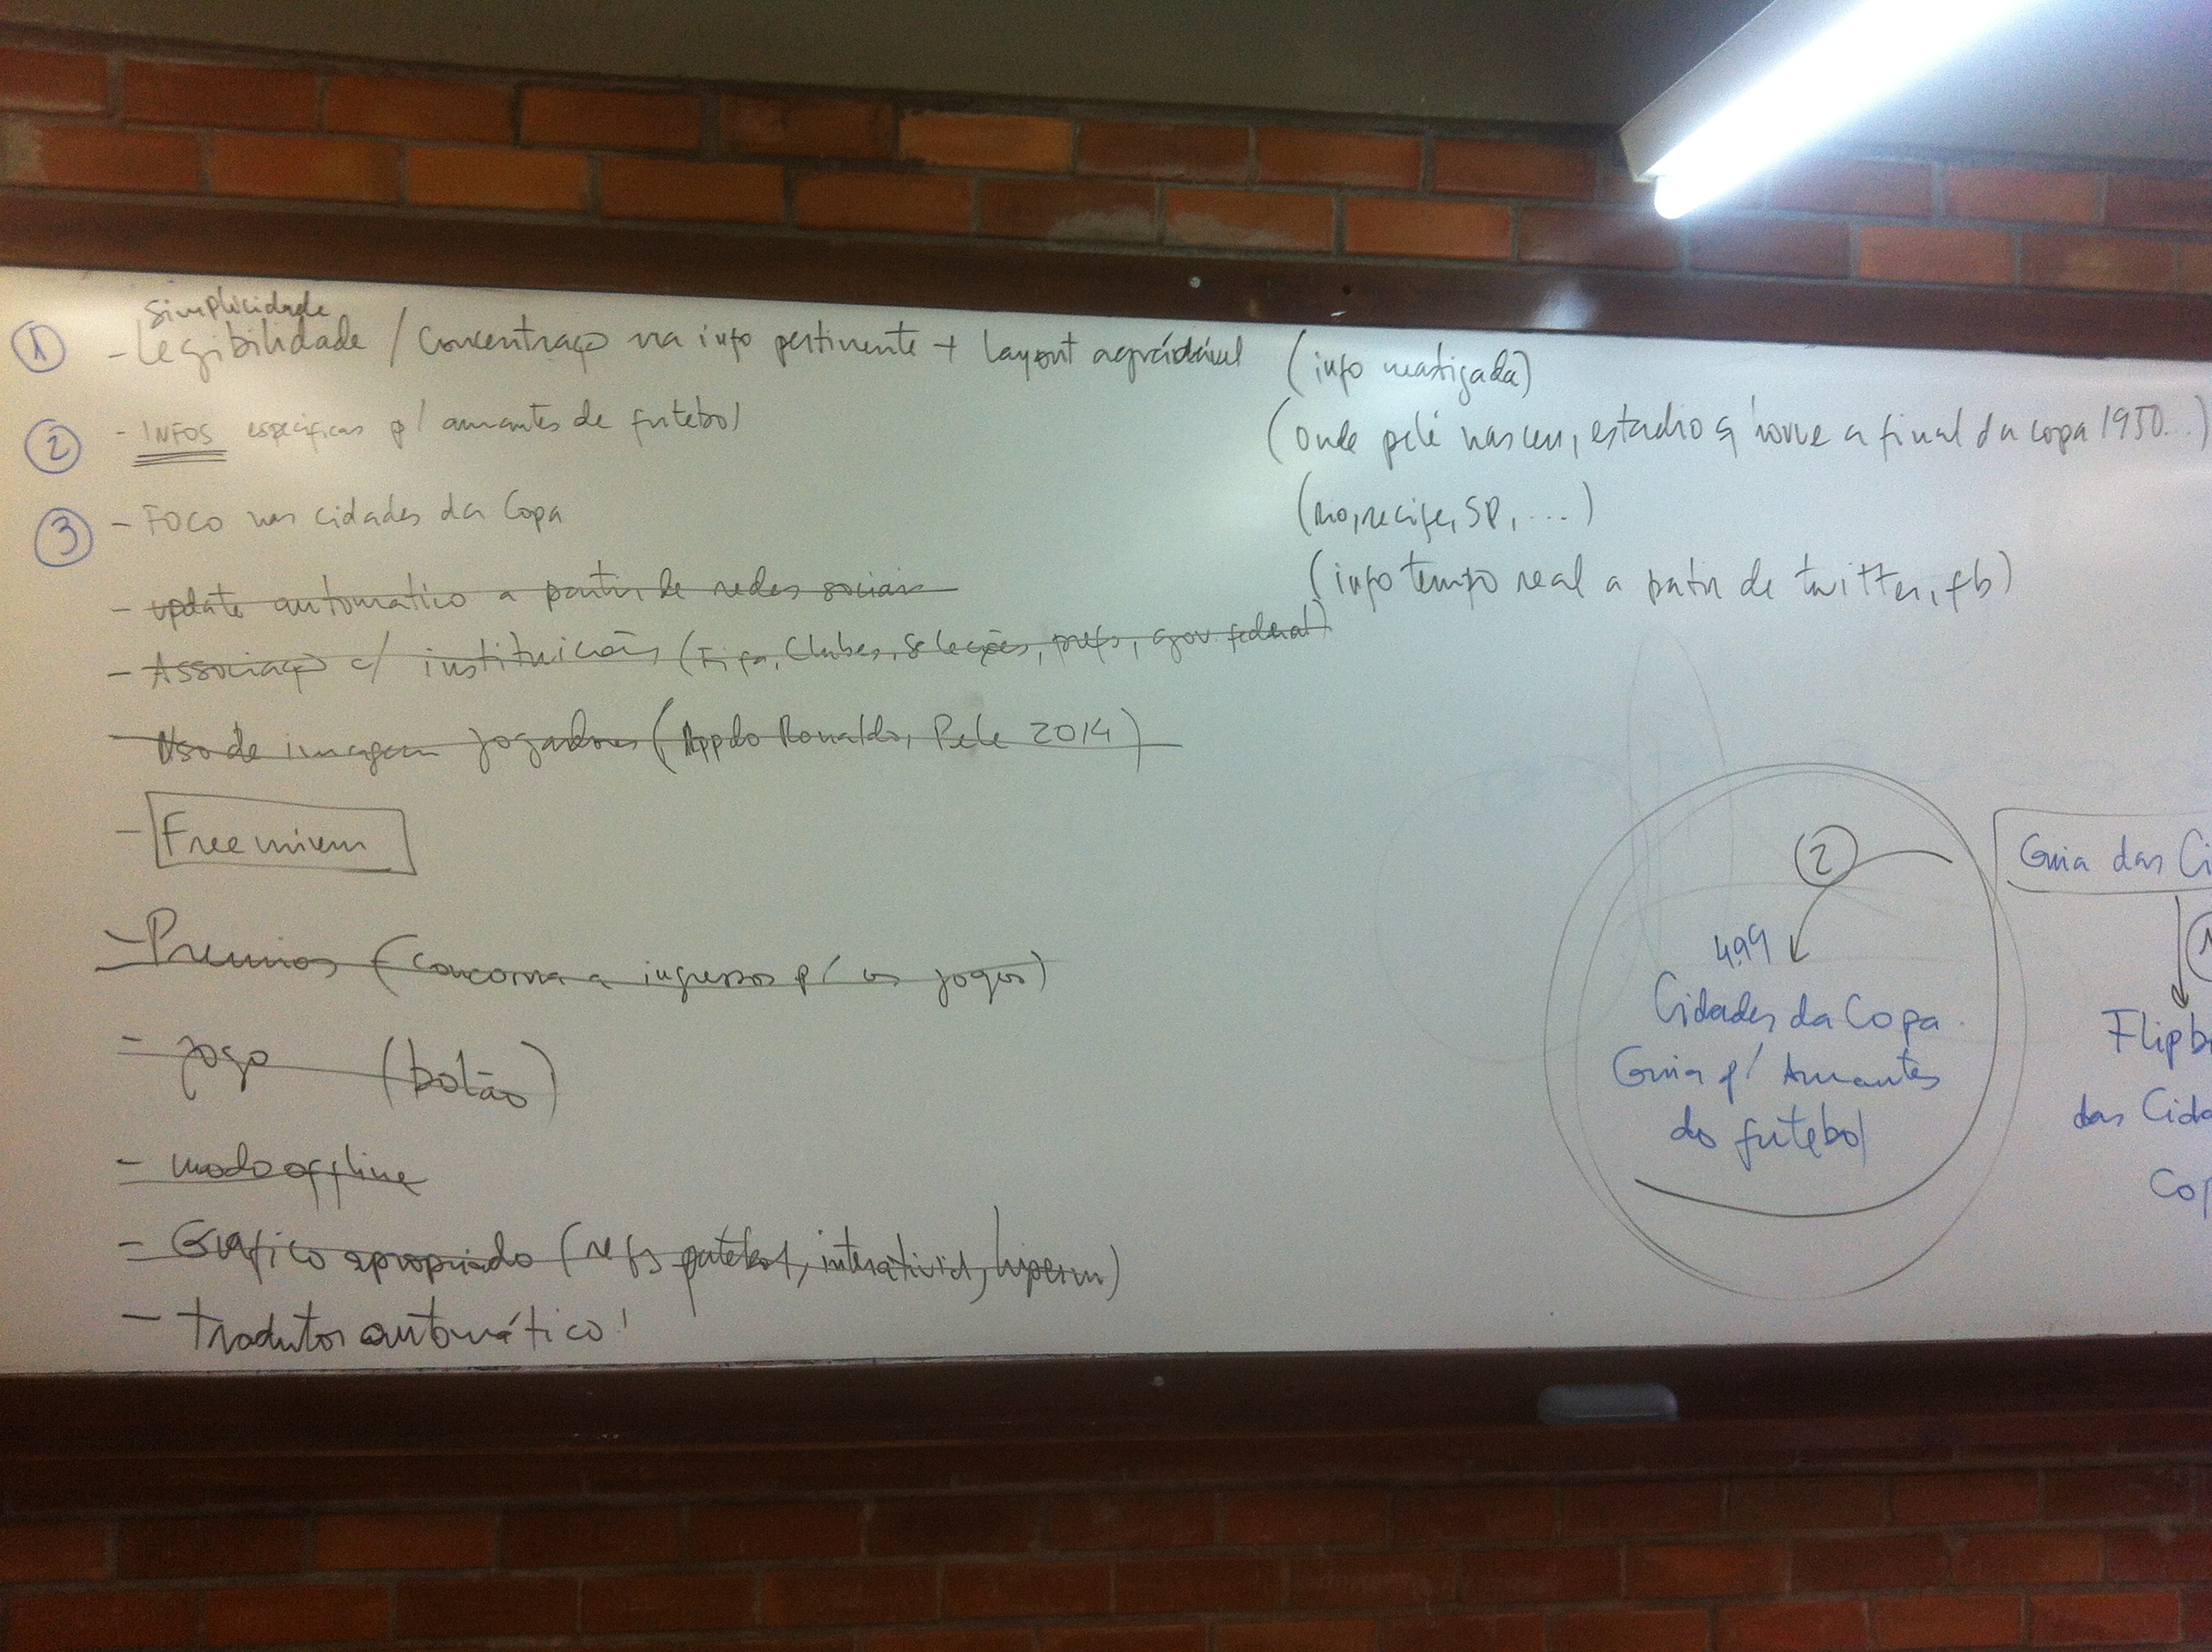 simplicidade
① - Legibilidade / Concentração na info pertinente + layout agradável (info mastigada)
② - INFOS específicas p/ amantes de futebol (onde pelé nasceu, estadio q houve a final da copa 1950...)
③ - FOCO nas cidades da Copa (rio, recife, SP, ...)
- update automatico a partir de redes sociais (info tempo real a partir de twitter, fb)
- Associação c/ instituições (Fifa, Clubes, Seleções, prefs, gov. federal)
- Uso de imagem jogadores (App do Ronaldo, Pele 2014)
- Freemium
- Premios (concorra a ingressos p/ os jogos)
- jogo (bolão)
- modo offline
- Gráfico apropriado (refs futebol, interativid, hiperm)
- tradutor automático!
②
4,99
Cidades da Copa
Guia p/ Amantes
do futebol
Guia das Ci
1
Flipb
das Cida
Cop